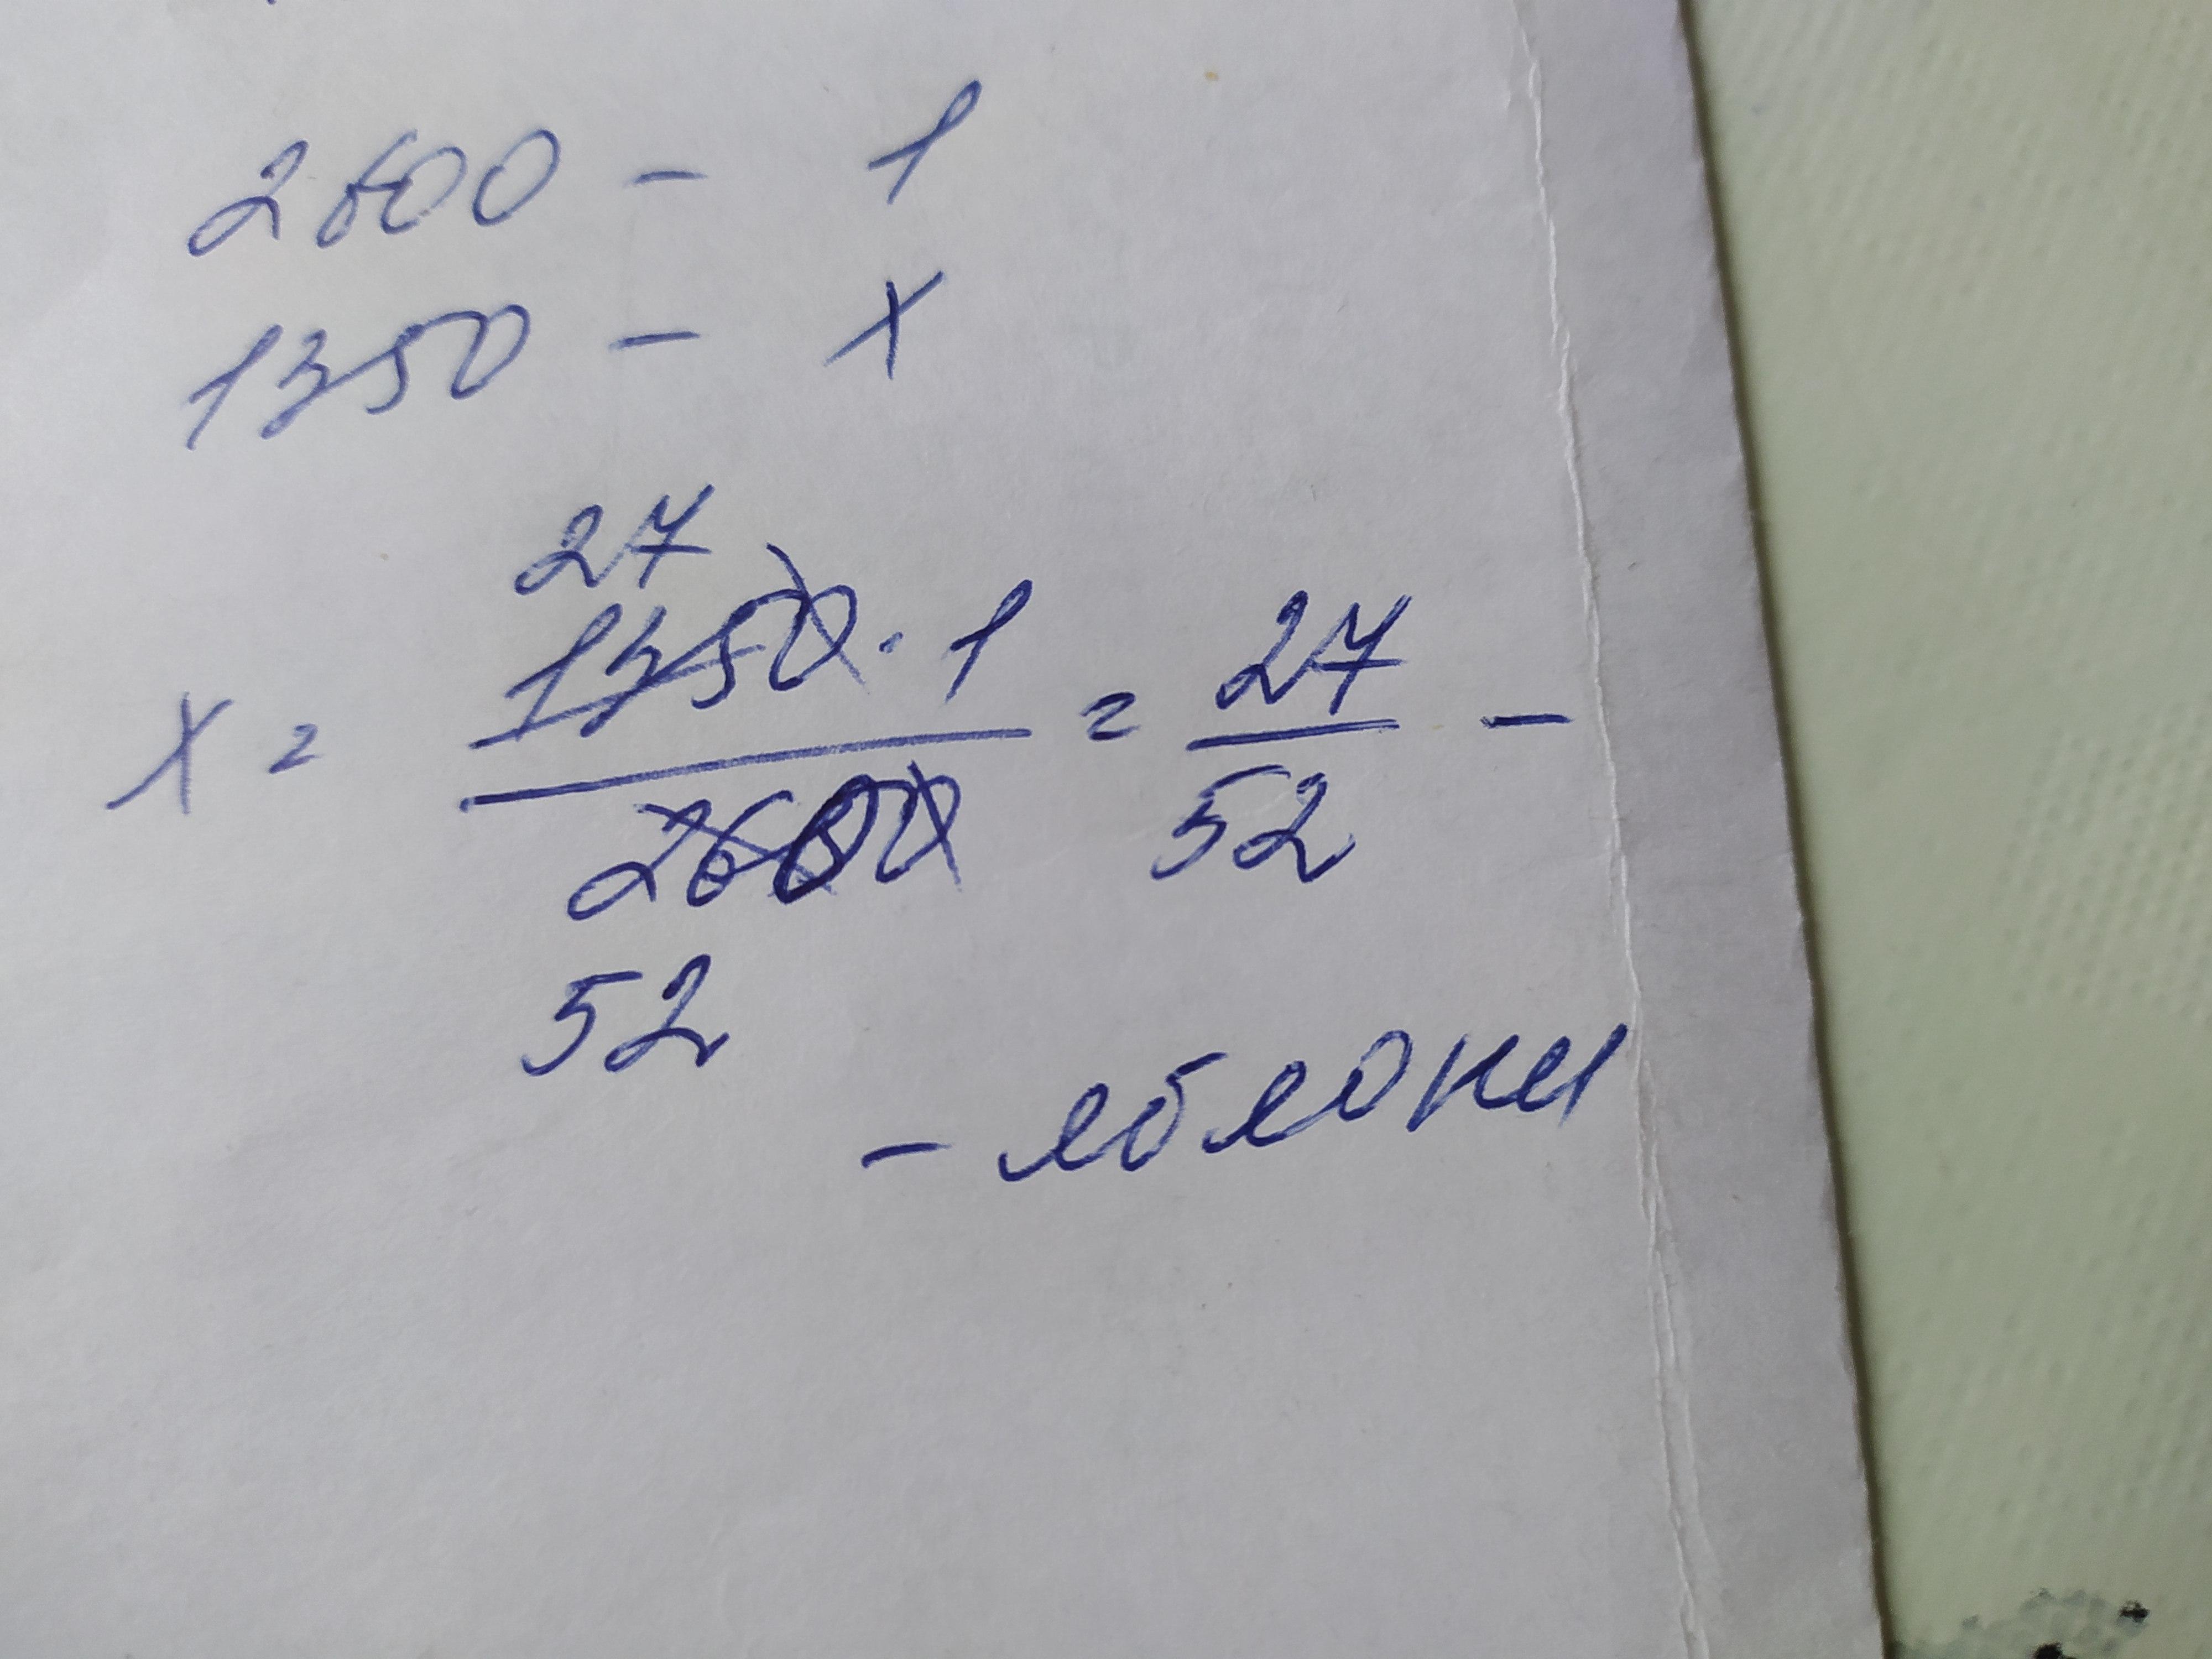 2600 - 1
1350 - x
27
x = 1350 · 1 / 2600 = 27 / 52 -
52
- яблоки